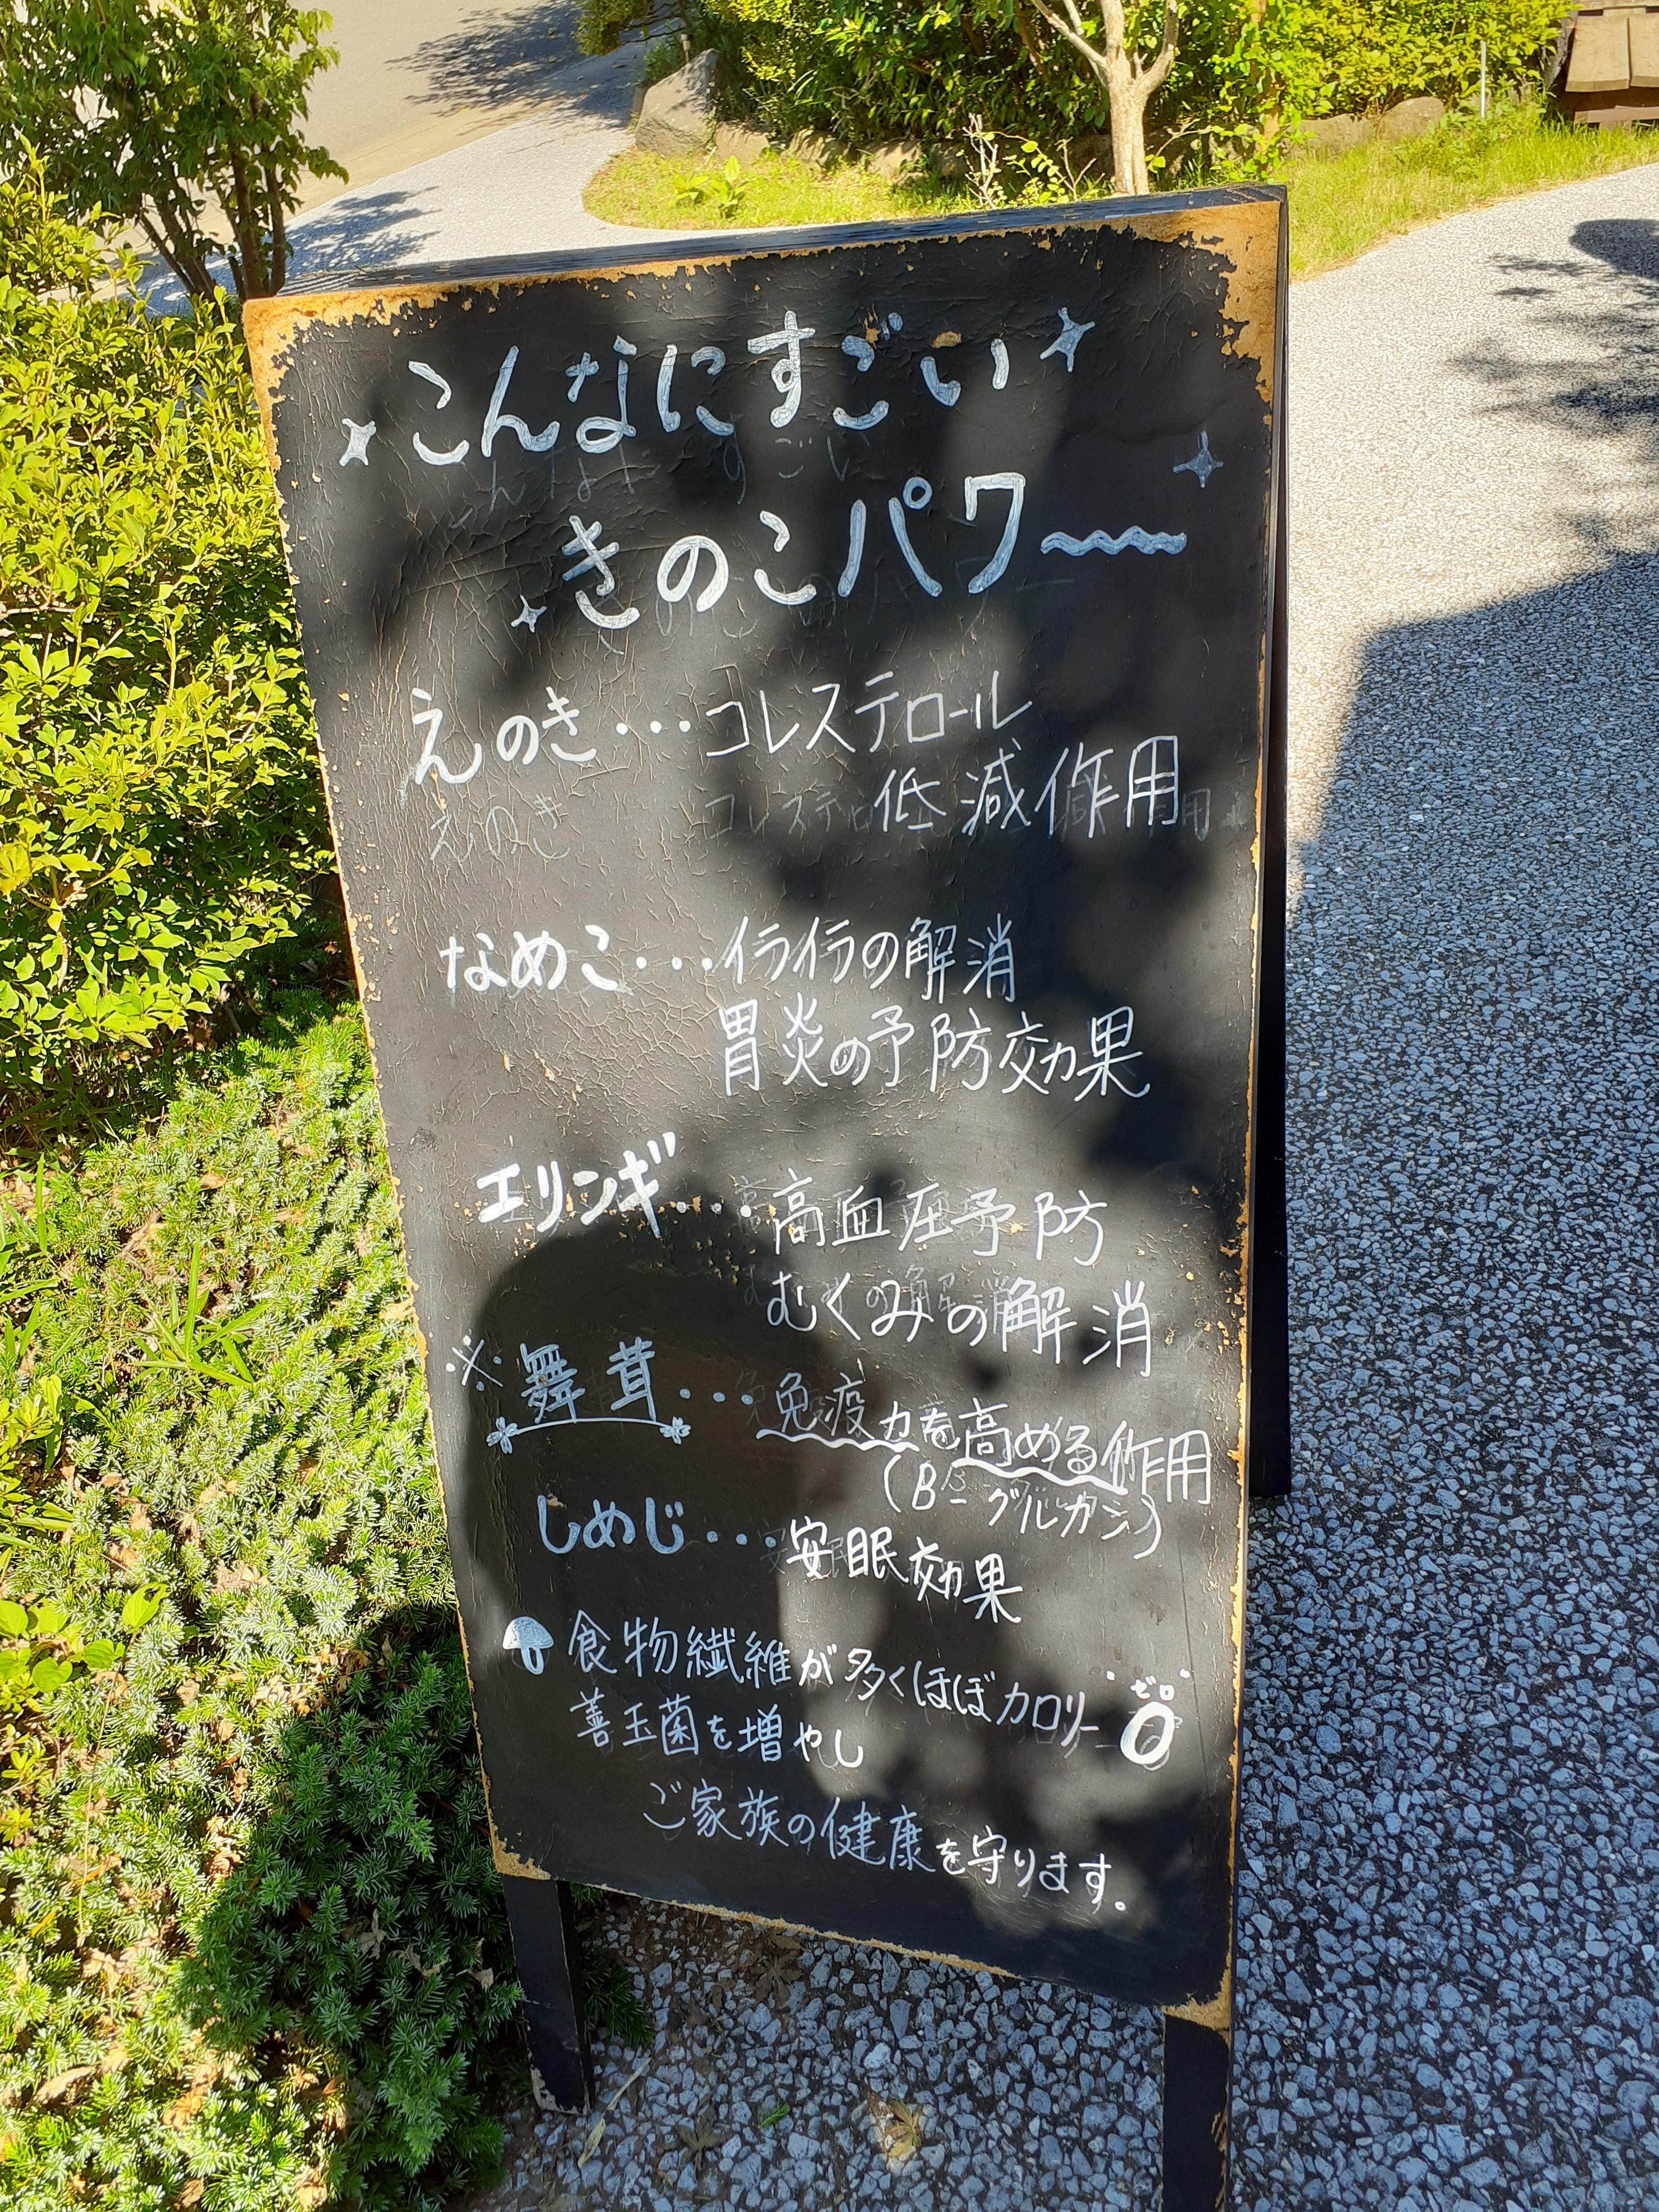 こんなにすごい
きのこパワ〜
えのき・・・コレステロール
低減作用
なめこ・・・イライラの解消
胃炎の予防効果
エリンギ・・・高血圧予防
むくみの解消
※舞茸・・・免疫力を高める作用
(B-グルカン)
しめじ・・・安眠効果
食物繊維が多くほぼカロリー"0"
ゼロ
善玉菌を増やし
ご家族の健康を守ります。